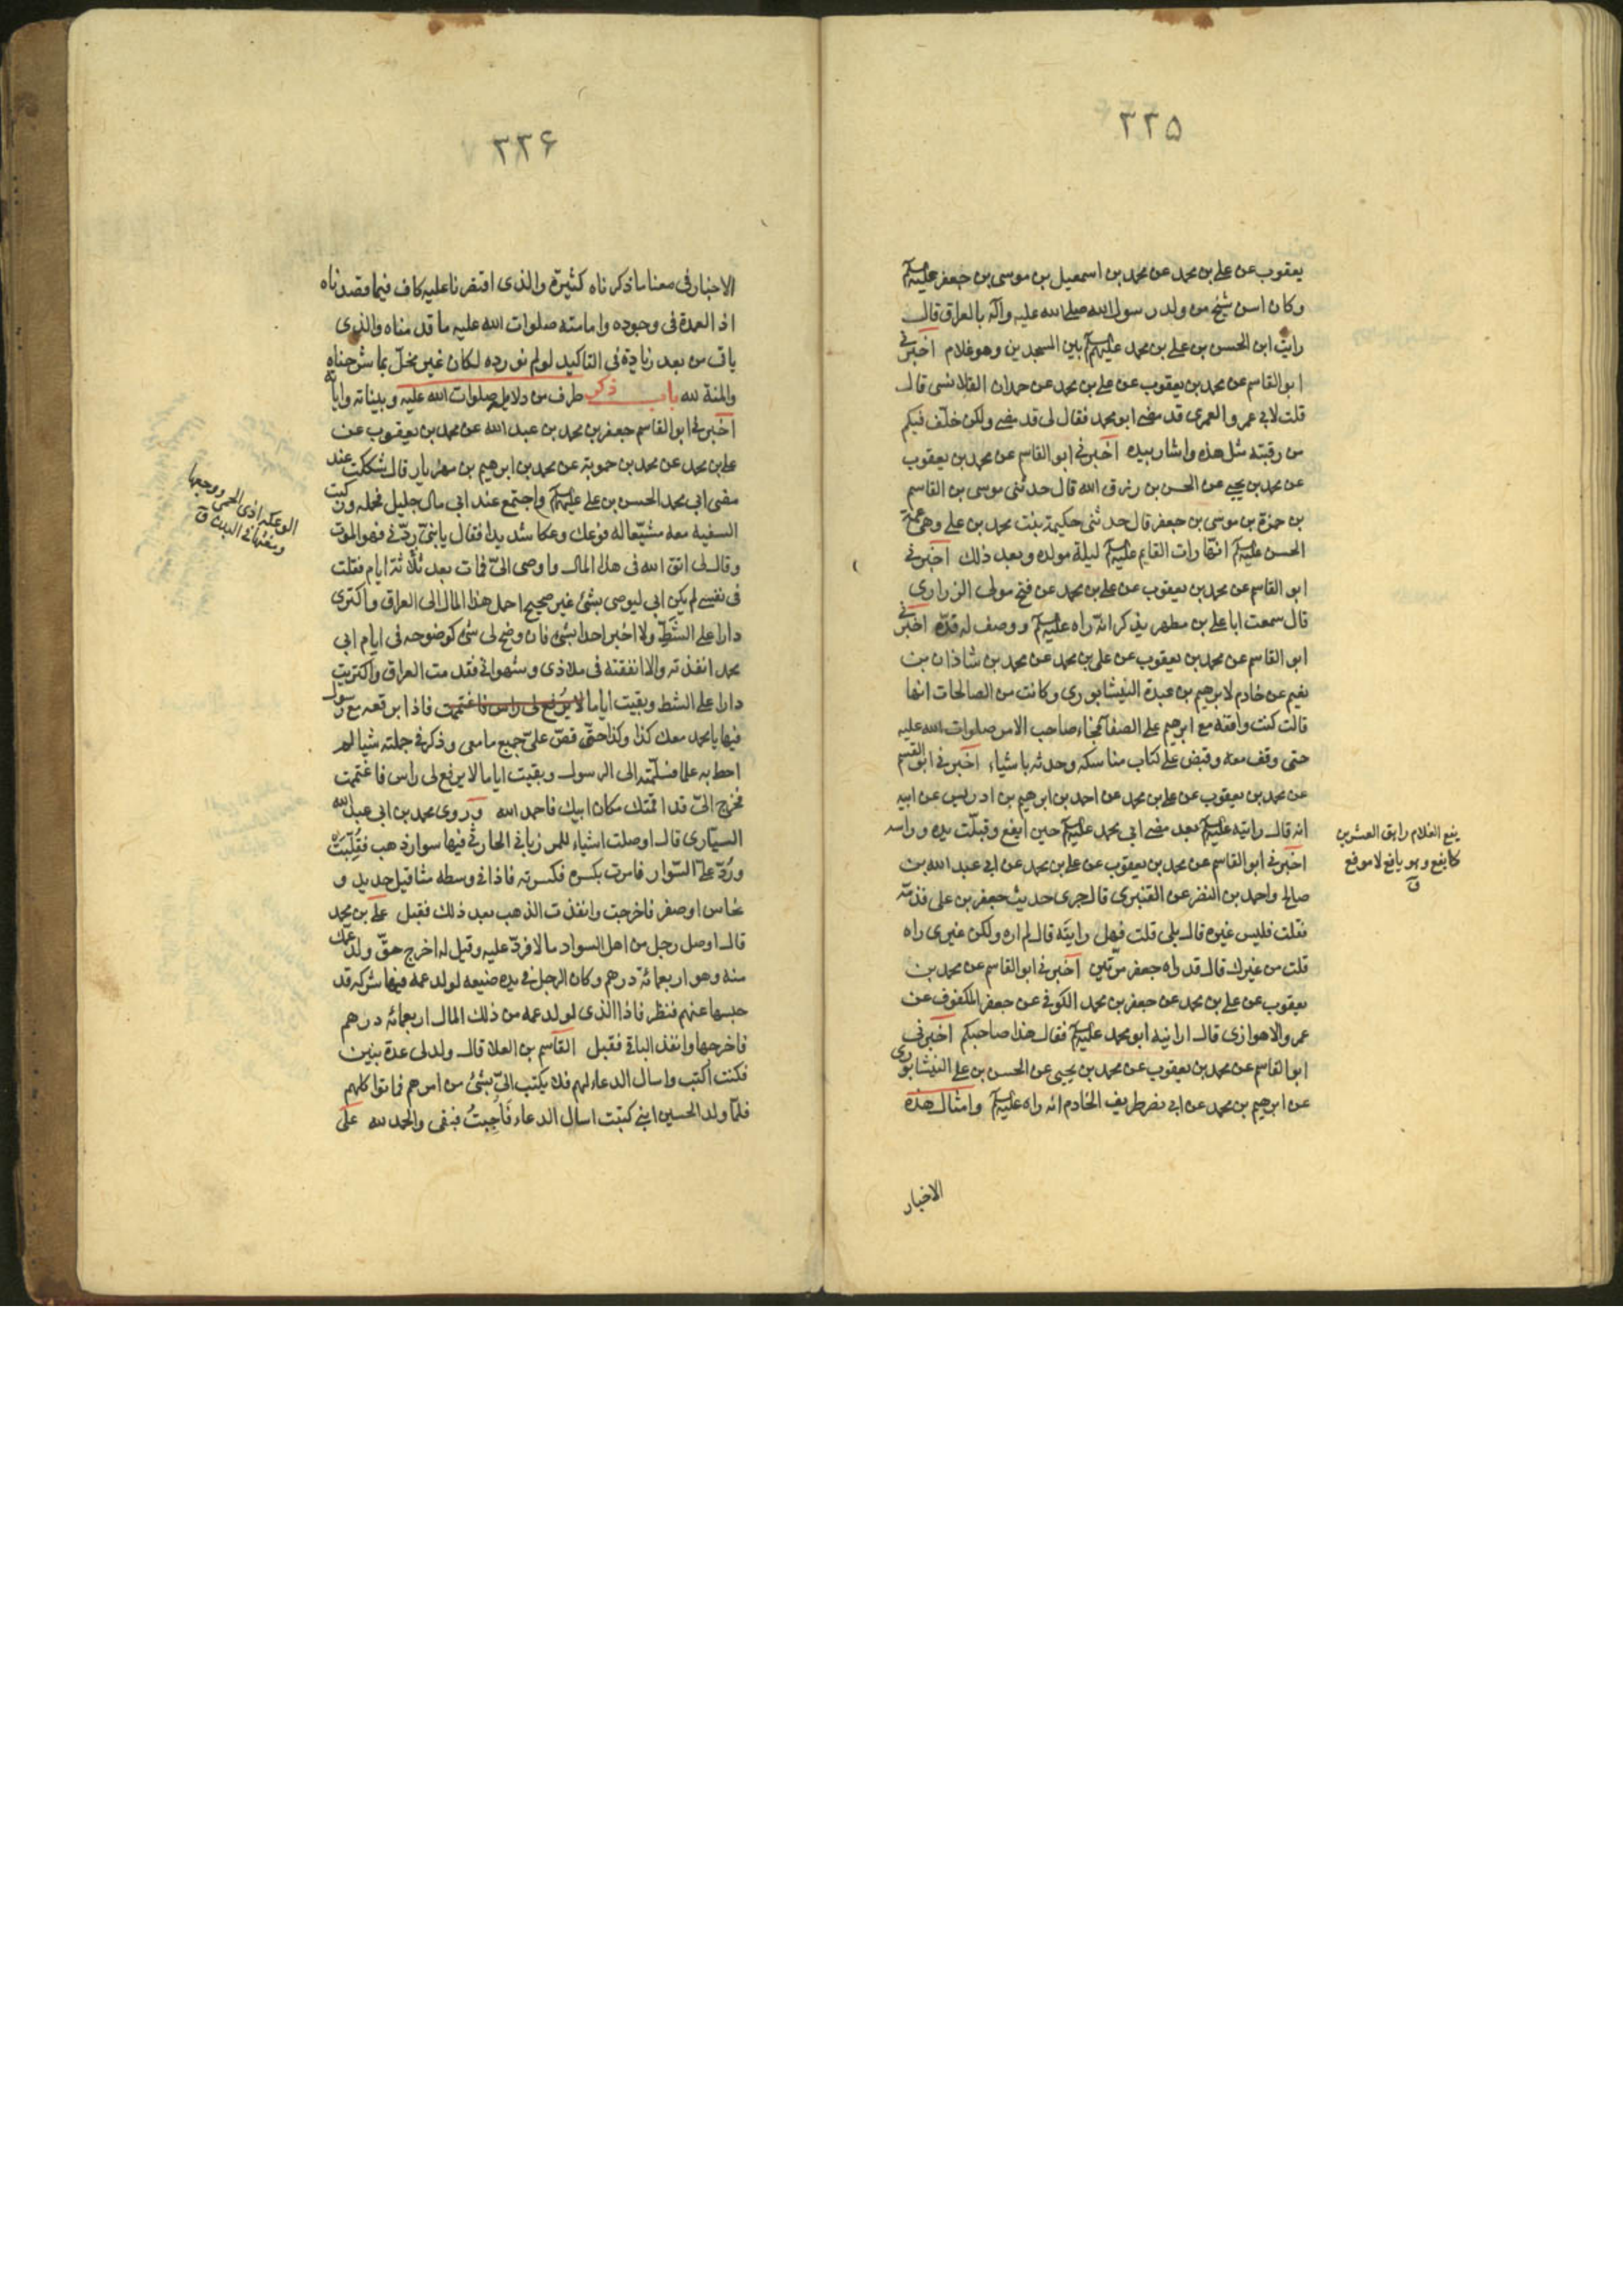 ٣٣۵
يعقوب عن على بن محمد عن محمد بن اسمعيل بن موسى بن جعفر عليهم
وكان اسن شيخ من ولد رسول الله صلى الله عليه وآله بالعراق قال
رايت ابن الحسن بن على بن محمد عليهم بين المسجدين وهو غلام اخبرنى
ابو القاسم عن محمد بن يعقوب عن على بن محمد عن حمدان القلانسى قال
قلت لابى عمرو العمرى قد مضى ابو محمد فقال لى قد مضى ولكن خلّف فيكم
من رقبته مثل هذه واشار بيده اخبرنى ابو القاسم عن محمد بن يعقوب
عن محمد بن يحيى عن الحسن بن رزق الله قال حدثنى موسى بن القاسم
بن حمزة بن موسى بن جعفر قال حدثنى حكيمة بنت محمد بن على وهى عمة
الحسن عليهم انّها رات القايم عليه ليلة مولده وبعد ذلك اخبرنى
ابو القاسم عن محمد بن يعقوب عن على بن محمد عن فتح مولى الزرارى
قال سمعت ابا على بن مطهر يذكر انّه راه عليه ووصف له قدّه اخبرنى
ابو القاسم عن محمد بن يعقوب عن على بن محمد عن محمد بن شاذان بن
نعيم عن خادم لابرهيم بن عبدة النيشابورى وكانت من الصالحات انها
قالت كنت واقفة مع ابرهيم على الصفا فجاء صاحب الامر صلوات الله عليه
حتى وقف معه وقبض على كتاب مناسكه وحدثه باشياء اخبرنى ابو القسم
عن محمد بن يعقوب عن على بن محمد عن احمد بن ابرهيم بن ادريس عن ابيه
انه قال رايته عليه بعد مضى ابى محمد عليه حين ايفع وقبلت يده وراسه
اخبرنى ابو القاسم عن محمد بن يعقوب عن على بن محمد عن ابى عبد الله بن
صالح واحمد بن النضر عن القنبرى قال جرى حديث جعفر بن على فذمّه
فقلت فليس غيره قال بلى قلت فهل رايته قال لم اره ولكن غيرى راه
قلت من غيرك قال قد راه جعفر مرتين اخبرنى ابو القاسم عن محمد بن
يعقوب عن على بن محمد عن جعفر بن محمد الكوفى عن جعفر المكفوف عن
عمرو الاهوازى قال ارانيه ابو محمد عليه فقال هذا صاحبكم اخبرنى
ابو القاسم عن محمد بن يعقوب عن محمد بن يحيى عن الحسن بن على النيشابورى
عن ابرهيم بن محمد عن ابى نصر طريف الخادم انه راه عليه وامثال هذه
الاخبار
يفع الغلام راهق العشرين
كايفع وهو يافع لا موفع
ق
٣٣۶
الاخبار فى معنا ما ذكرناه كثيرة والذى اقتصرنا عليه كاف فيما قصدناه
اذ العمدة فى وجوده وامامته صلوات الله عليه ما قدمناه والذى
ياتى من بعد زيادة فى التاكيد لو لم نورده لكان غير مخلّ بما شرحناه
والمنة لله باب ذكر طرف من دلايل صلوات الله عليه وبيناته واياته
اخبرنى ابو القاسم جعفر بن محمد بن عبد الله عن محمد بن يعقوب عن
على بن محمد عن محمد بن حمويه عن محمد بن ابرهيم بن مهزيار قال شككت عند
مضى ابى محمد الحسن بن على عليهم واجتمع عند ابى مال جليل فحمله وركبت
السفينه معه مشيّعا له فوعك وعكا شديدا فقال يا بنىّ ردّنى فهو الموت
وقال لى اتق الله فى هذا المال واوصى الىّ فمات بعد ثلاثة ايام فقلت
فى نفسى لم يكن ابى ليوصى بشئ غير صحيح احمل هذا المال الى العراق واكترى
دارا على الشطّ ولا اخبر احدا بشئ فان وضح لى شئ كوضوحه فى ايام ابى
محمد انفذته والا انفقته فى ملاذى وشهواتى فقدمت العراق واكتريت
دارا على الشط وبقيت اياما لا يرفع لى راس فاغتممت فاذا برقعه مع رسول
فيها يا محمد معك كذا وكذا حتّى قصّ علىّ جميع ما معى وذكر فى جملته شيا لم
احط به علما فسلّمته الى الرسول وبقيت اياما لا يرفع لى راس فاغتممت
فخرج الىّ قد اقمتك مكان ابيك فاحمد الله وروى محمد بن ابى عبد الله
السيّارى قال اوصلت اشياء للمرزبانى الحارثى فيها سوار ذهب فقُبِلَت
ورُدّ علىّ السّوار فامرت بكسره فكسرته فاذا فى وسطه مثاقيل حديد و
نحاس او صفر فاخرجت وانفذت الذهب بعد ذلك فقبل على بن محمد
قال اوصل رجل من اهل السواد مالا فردّ عليه وقيل له اخرج حقّ ولد عمك
منه وهو اربعمائة درهم وكان الرجل فى يده ضيعه لولد عمه فيها شركه قد
حبسها عنهم فنظر فاذا الذى لولد عمه من ذلك المال اربعمائه درهم
فاخرجها وانفذ الباقى فقبل القاسم بن العلا قال ولد لى عدة بنين
فكنت اكتب واسال الدعاء لهم فلا يكتب الىّ بشئ من امرهم فماتوا كلهم
فلمّا ولد الحسين ابنى كتبت اسال الدعاء فَاُجِبتُ فبقى والحمد لله على
الوعكه اذى الحمى ووجعها
ومغثها فى البدن ق